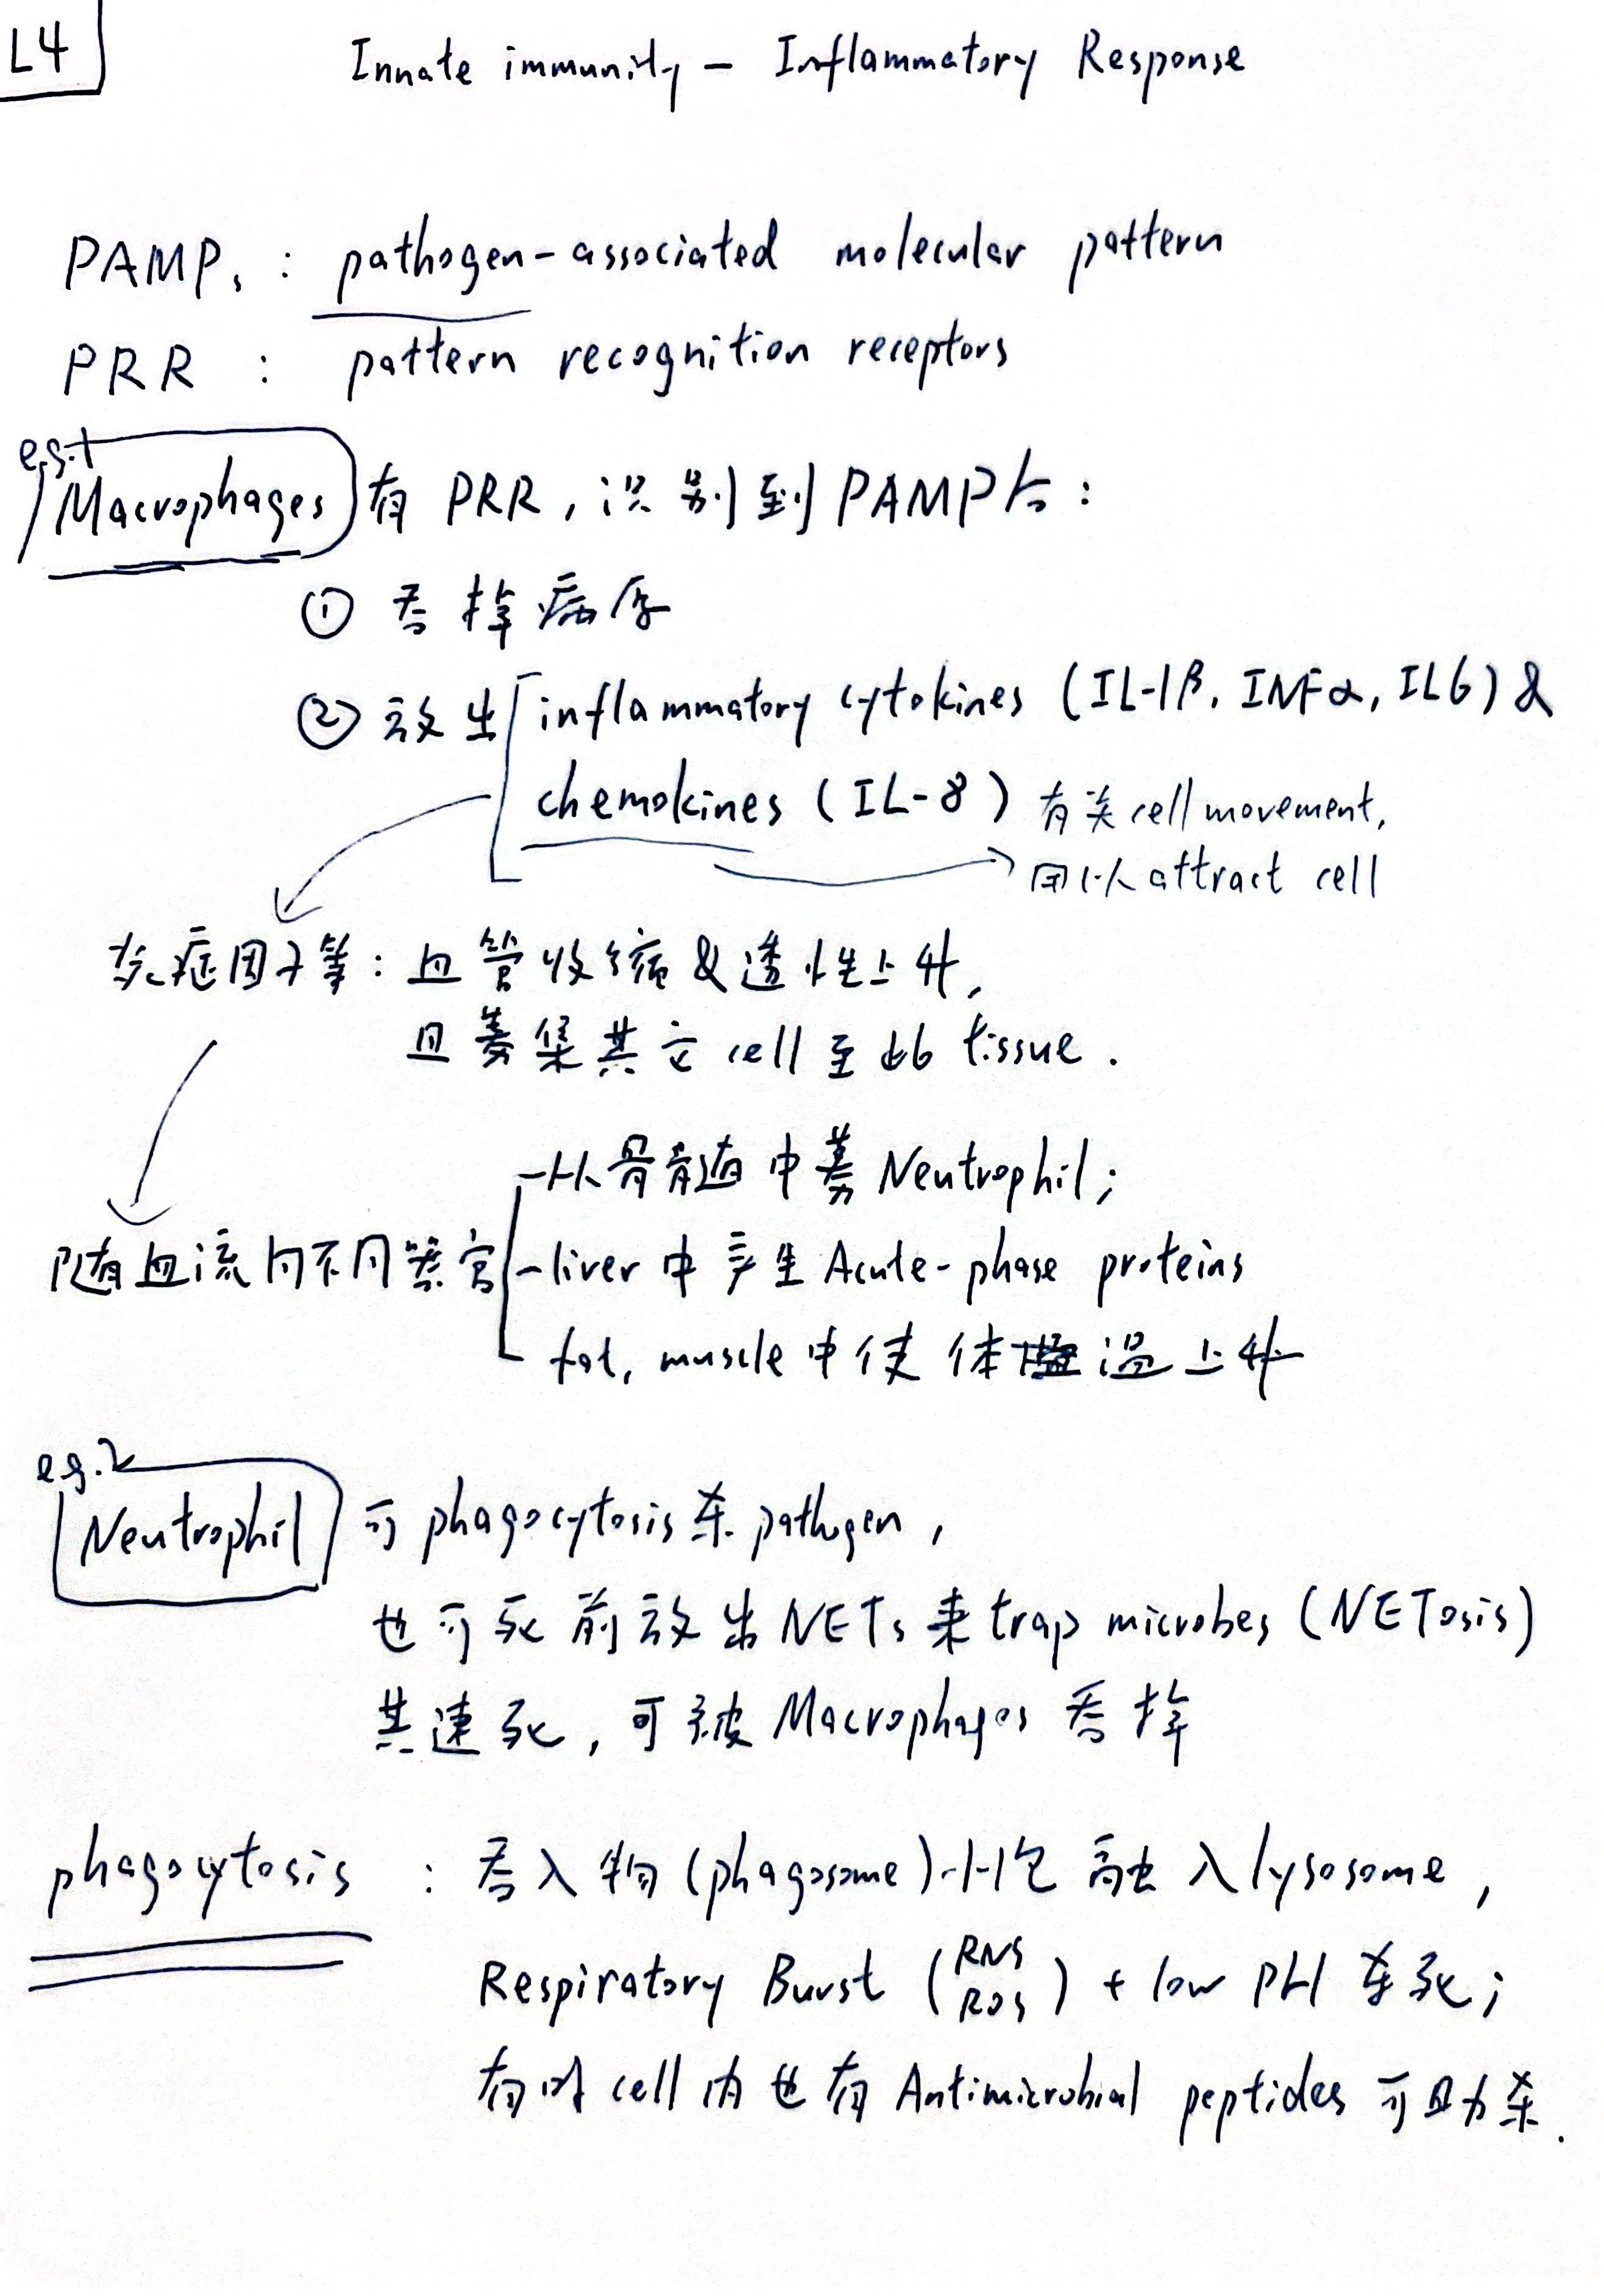 L4
Innate immunity - Inflammatory Response
PAMPs : pathogen-associated molecular pattern
PRR : pattern recognition receptors
e.g.1
Macrophages 有 PRR, 识别到 PAMP后:
① 吞掉病原
② 放出 inflammatory cytokines (IL-1β, INFα, IL6) &
chemokines (IL-8) 有关 cell movement,
可以 attract cell
炎症因子等: 血管收缩 & 透性上升,
且募集其它 cell 至此 tissue.
-从骨髓中募 Neutrophil;
随血流向不同器官 -liver 中产生 Acute-phase proteins
fat, muscle 中使体温上升
e.g.2
Neutrophil 可 phagocytosis 杀 pathogen,
也可死前放出 NETs 来 trap microbes (NETosis)
其速死, 可被 Macrophages 吞掉
phagocytosis : 吞入物 (phagosome) 小泡 融入 lysosome,
Respiratory Burst (RNS ROS) + low PH 杀死;
有时 cell 内也有 Antimicrobial peptides 可助杀.